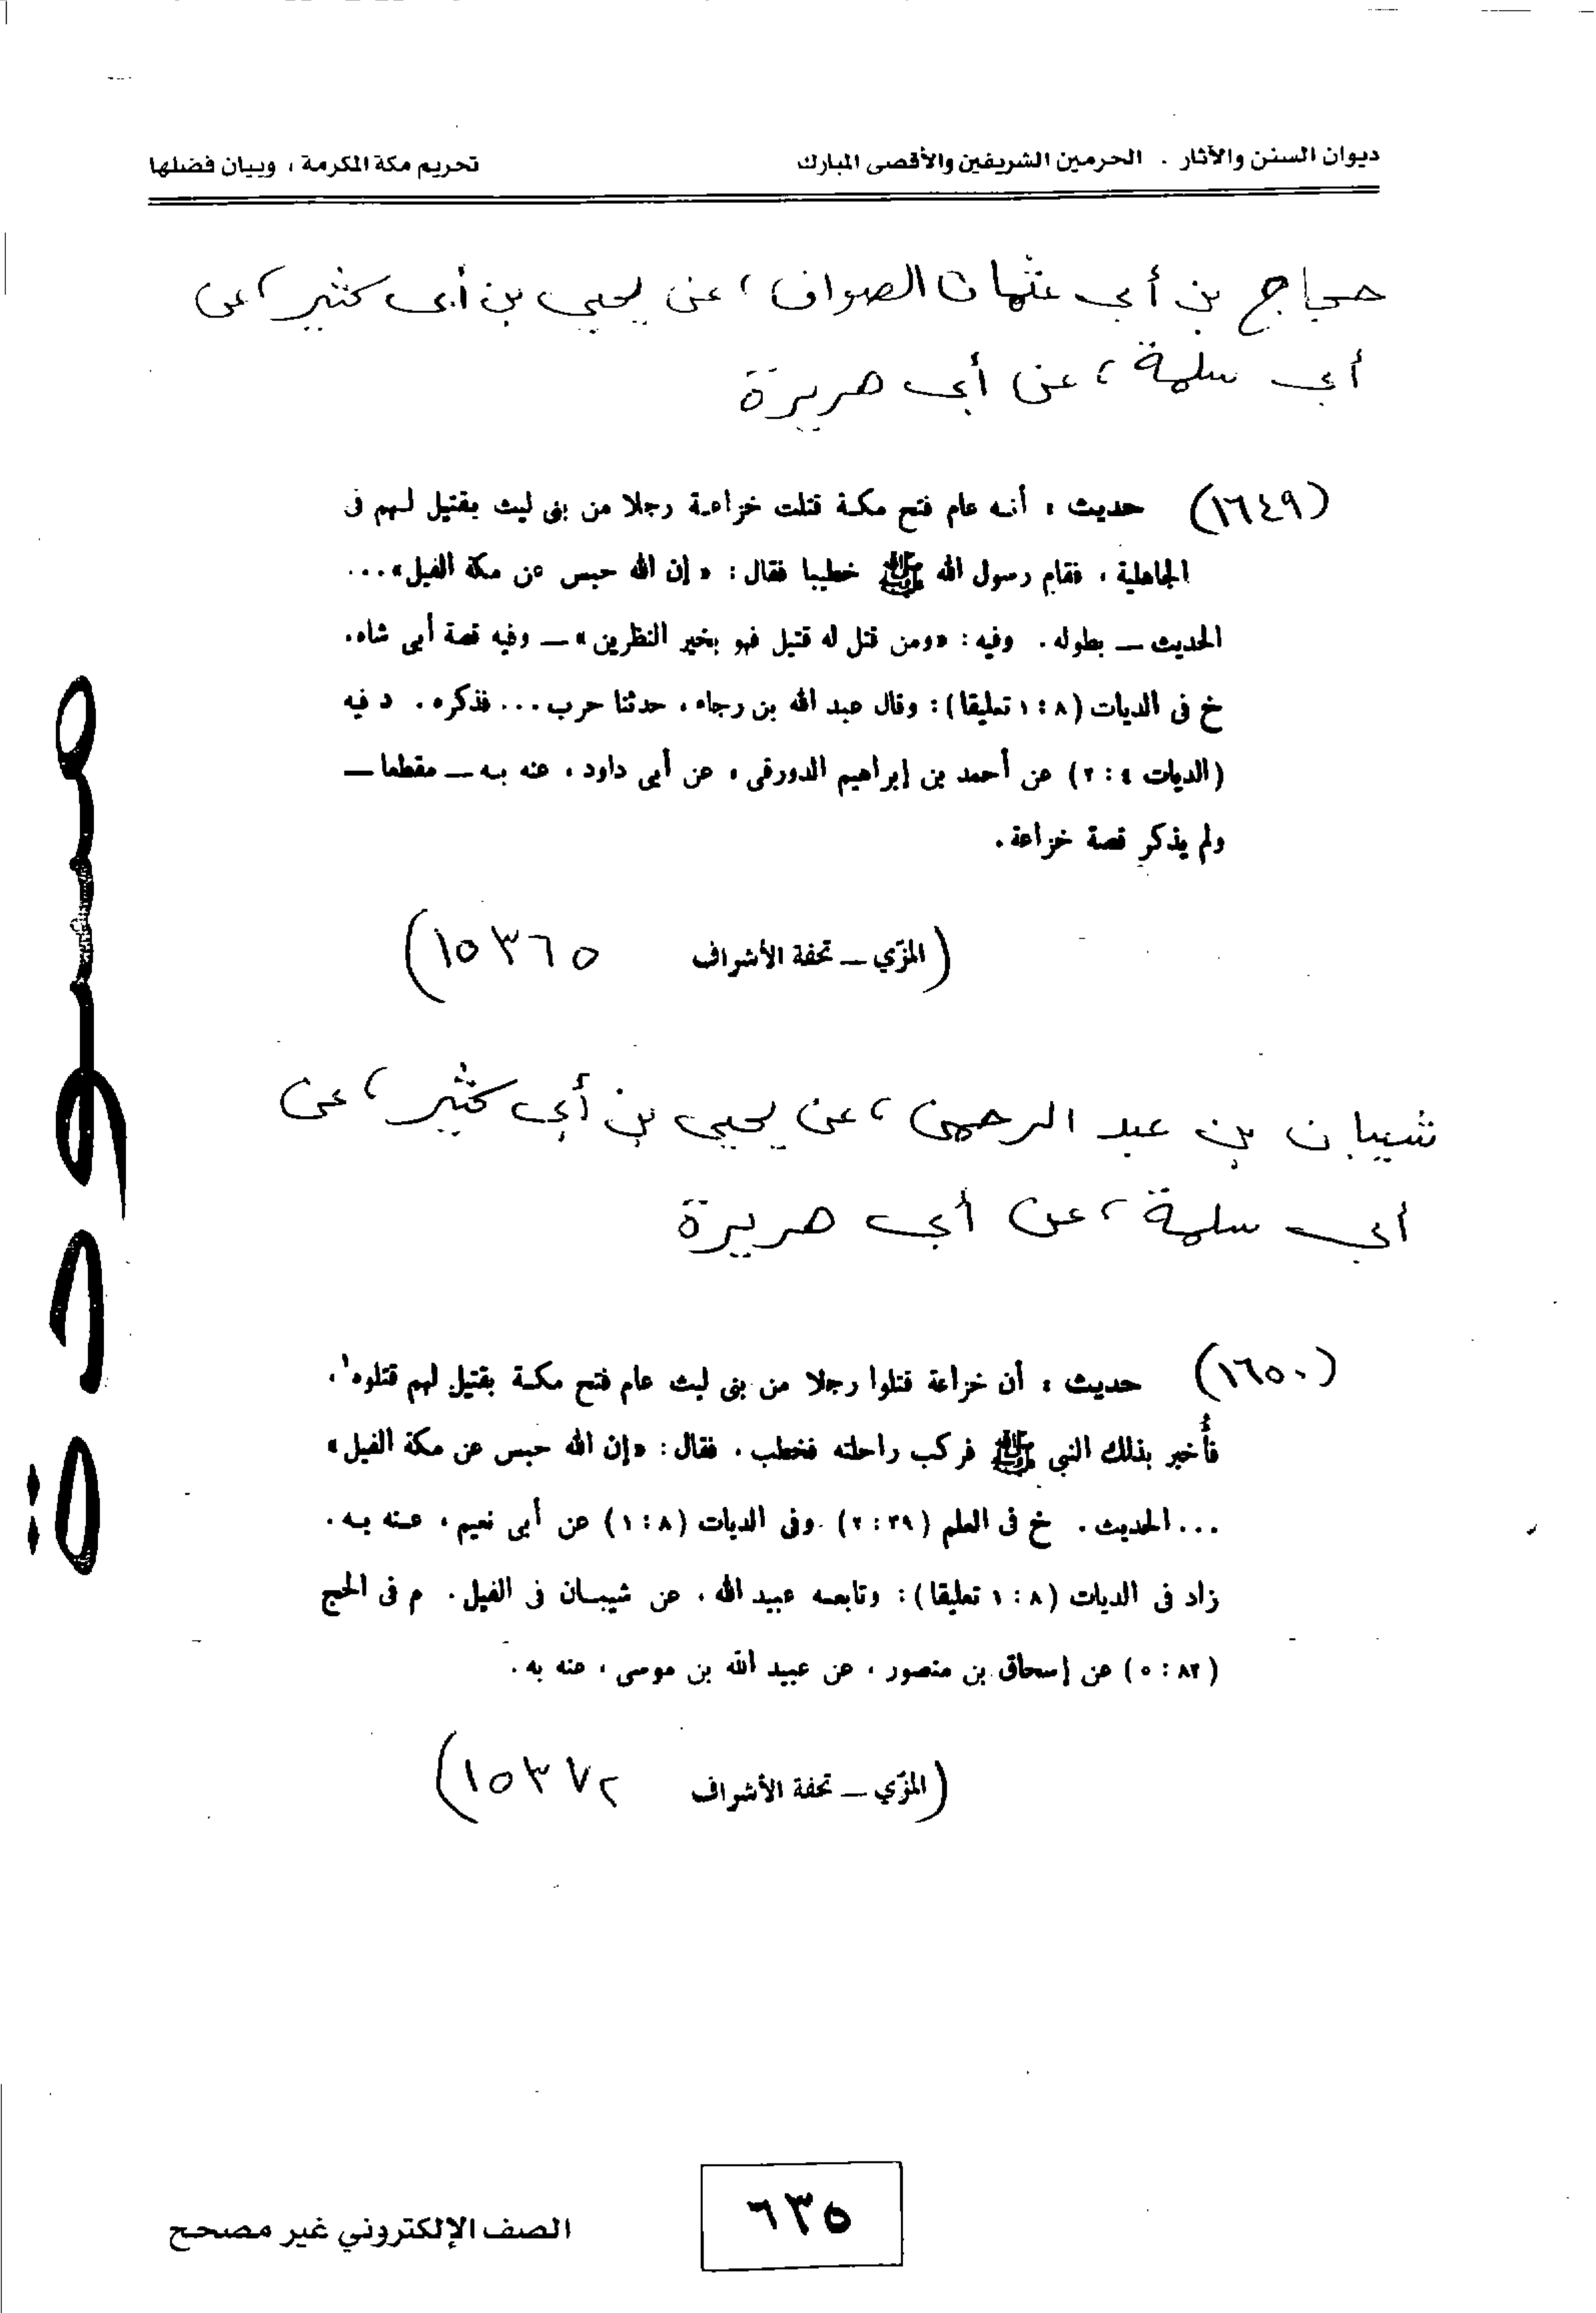 ديوان السنن والآثار . الحرمين الشريفين والأقصى المبارك
تحريم مكة المكرمة ، وبيان فضلها
حجاج بن أبي عثمان الصواف ، عن يحيى بن أبي كثير ، عن
أبي سلمة ، عن أبي هريرة
(١٦٤٩) حديث : أنه عام فتح مكة قتلت خزاعة رجلا من بنى ليث بقتيل لهم فى
الجاهلية ، فقام رسول الله ﷺ خطيبا فقال : « إن الله حبس عن مكة الفيل» ...
الحديث ـ بطوله . وفيه : «ومن قتل له قتيل فهو بخير النظرين » ـ وفيه قصة أبى شاه .
خ فى الديات (٨ : ١ تعليقا) : وقال عبد الله بن رجاء ، حدثنا حرب ... فذكره . د فيه
(الديات ٤ : ٢) عن أحمد بن إبراهيم الدورقى ، عن أبى داود ، عنه به ـ مقطعا ـ
ولم يذكر قصة خزاعة .
(المزّي ـ تحفة الأشراف ١٥٣٦٥)
شيبان بن عبد الرحمن ، عن يحيى بن أبي كثير ، عن
أبي سلمة ، عن أبي هريرة
(١٦٥٠) حديث : أن خزاعة قتلوا رجلا من بنى ليث عام فتح مكة بقتيل لهم قتلوه ١ ،
فأُخبر بذلك النبى ﷺ فركب راحلته فخطب ، فقال : «إن الله حبس عن مكة الفيل»
... الحديث . خ فى العلم (٣٩ : ٢) وفى الديات (٨ : ١) عن أبى نعيم ، عنه به .
زاد فى الديات (٨ : ١ تعليقا) : وتابعه عبيد الله ، عن شيبان فى الفيل . م فى الحج
(٨٢ : ٥) عن إسحاق بن منصور ، عن عبيد الله بن موسى ، عنه به .
(المزّي ـ تحفة الأشراف ١٥٣٧٢)
مسودة
٦٣٥
الصف الإلكتروني غير مصحح